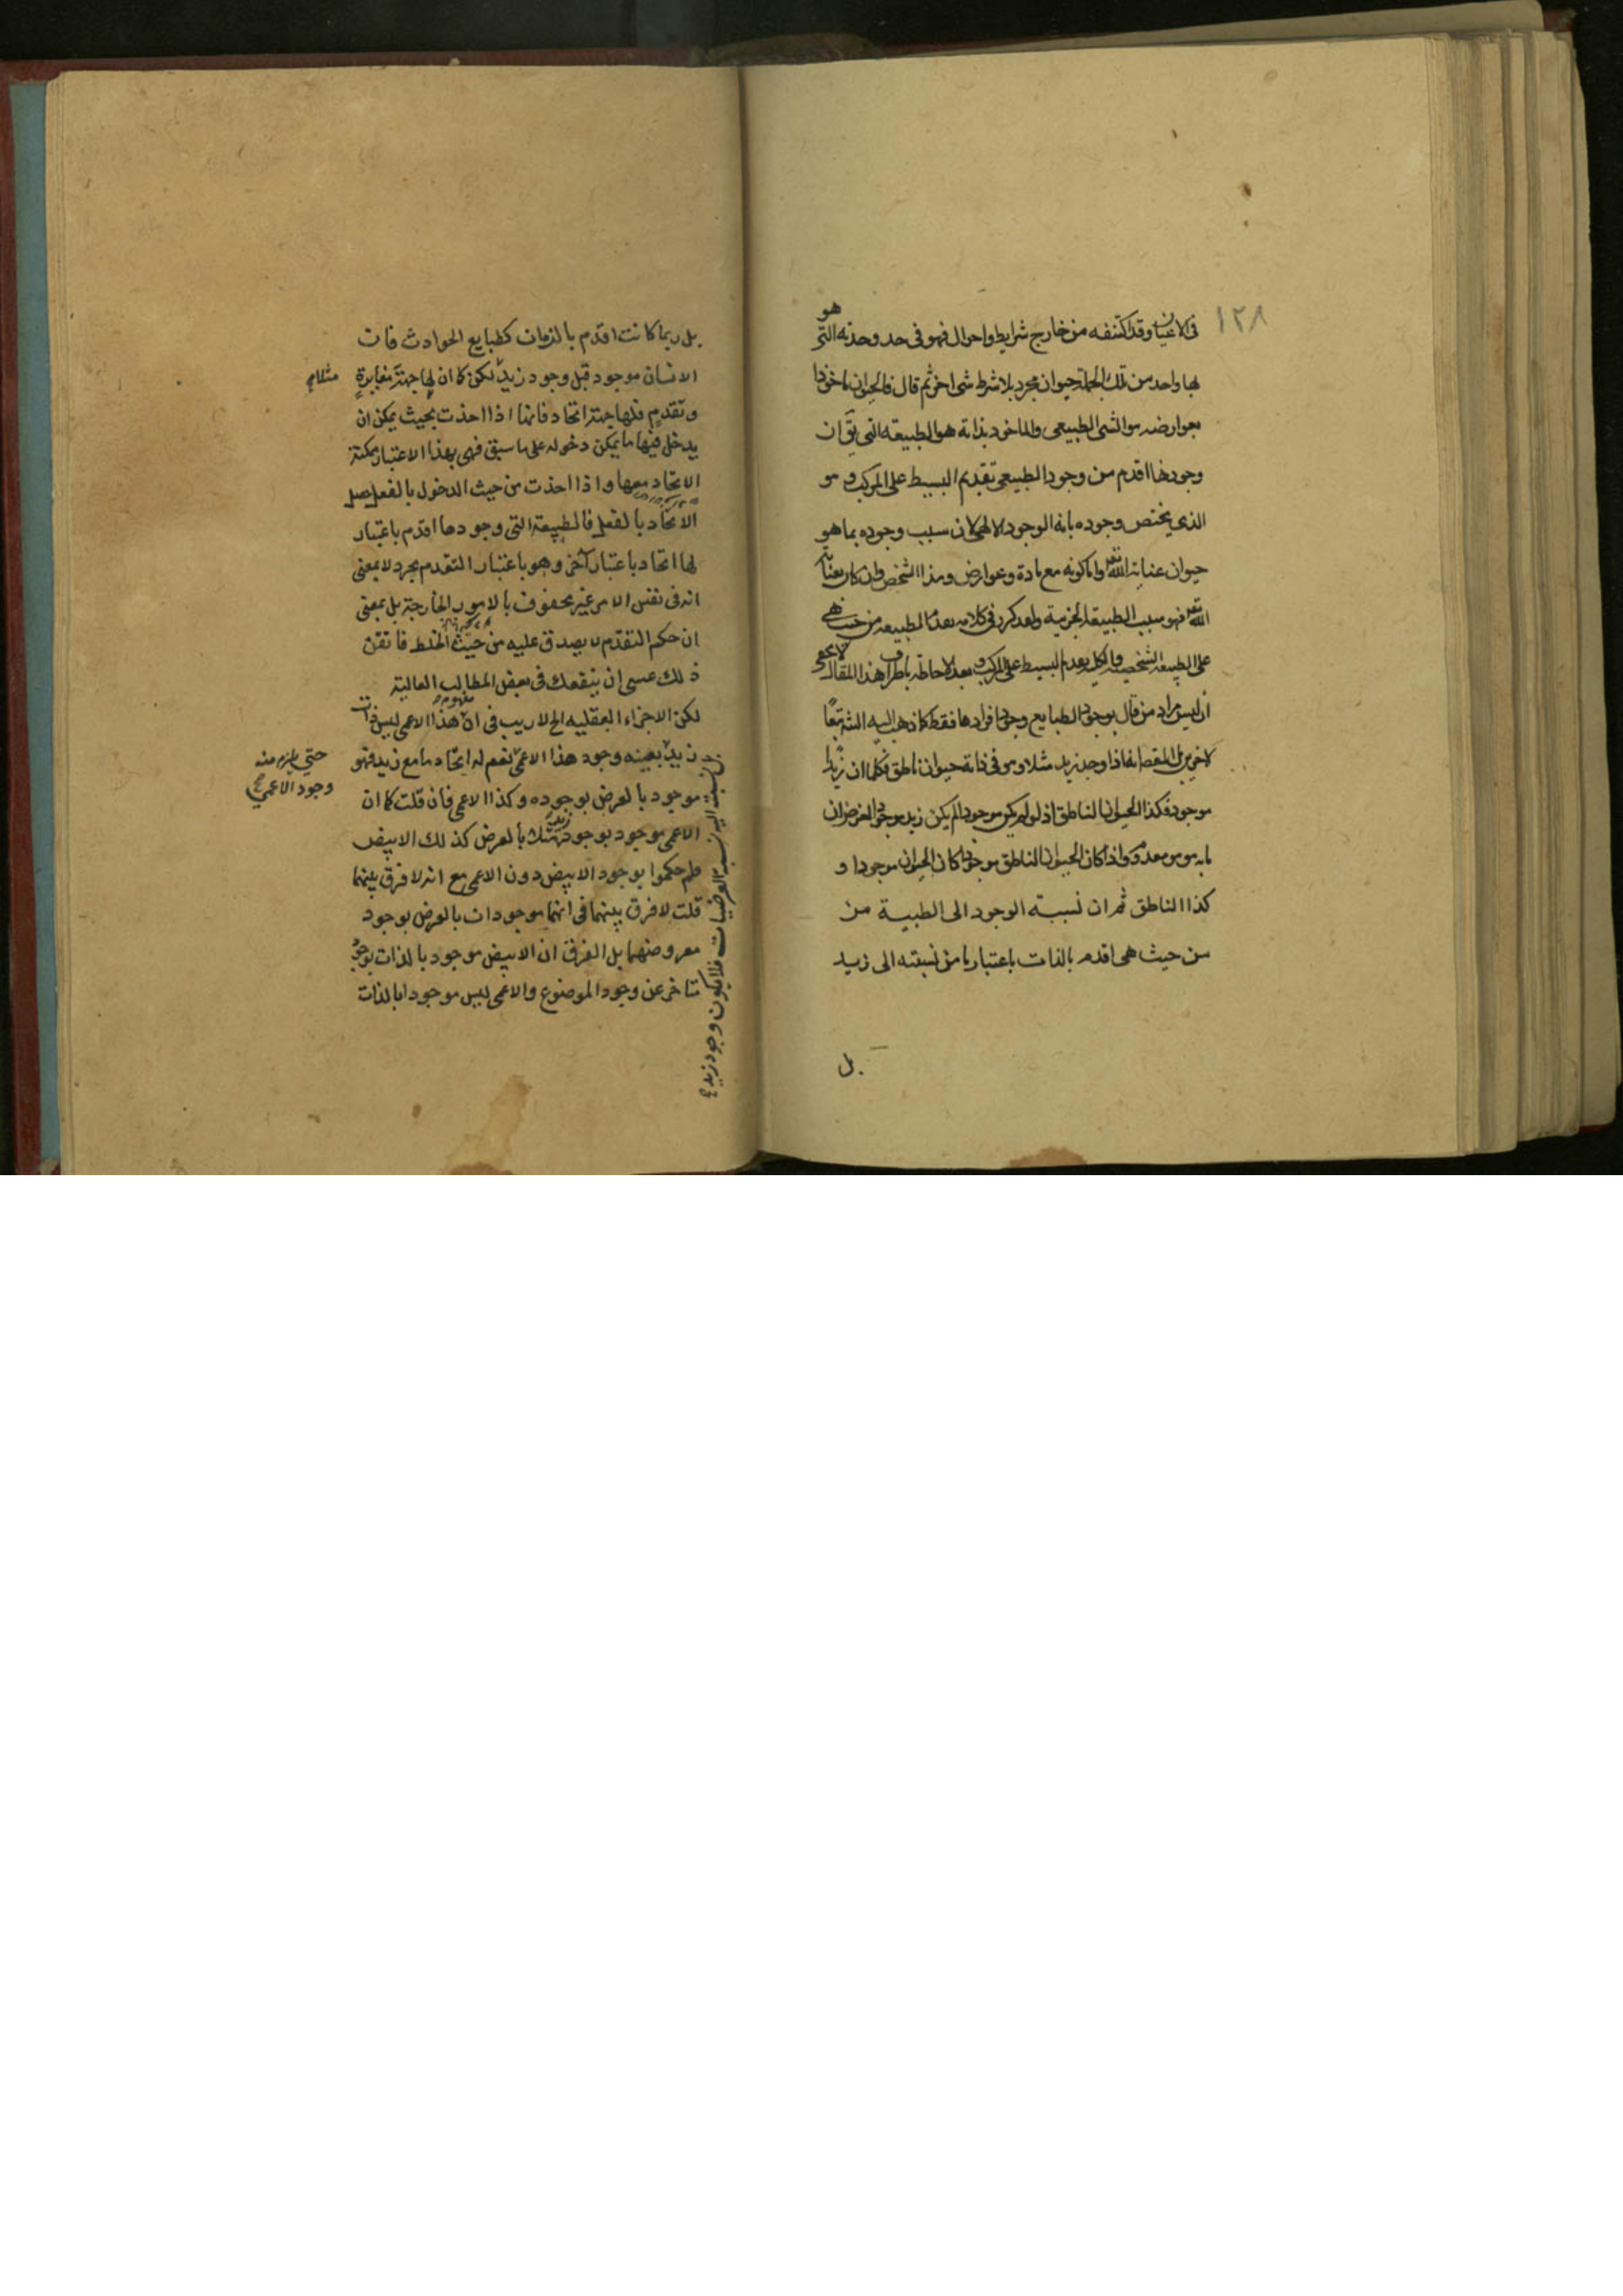 ١٢٨
في الاعيان وقد اكتنفه من خارج شرايط واحوال فهو في حد وحدته التي هو
بها واحد من تلك الجملة حيوان مجرد بلا شرط شئ اخر ثم قال فالحيوان ماخوذا
بعوارضه هو الشئ الطبيعى والماخوذ بذاته هو الطبيعة التى يق ان
وجودها اقدم من وجود الطبيعى تقدم البسيط على المركب و هو
الذى يختص وجوده بانه الوجود الالهى لان سبب وجوده بما هو
حيوان عناية الله تعه واما كونه مع مادة وعوارض وهذا الشخص وان كان بعناية
الله تعه فهو سبب الطبيعة الجزئية ولعد كرر فى كلامه بعدم الطبيعه من حيث هى
على الطبيعه الشخصية والكلى بعدم البسيط على المركب و بعد الاحاطة باطراف هذا المقال لا يخفى
ان ليس مراد من قال بوجود الطبايع وجود افرادها فقط كما ذهب اليه الش تبعا
لاخرين بل المقص انه اذا وجد زيد مثلا وهو فى ذاته حيوان ناطق فكما ان زيدا
موجود فكذا الحيوان الناطق اذ لو لم يكن موجودا لم يكن زيد موجودا لغرض ان
ما به هو هو معدوم واذا كان الحيوان الناطق موجودا كان الحيوان موجودا و
كذا الناطق ثم ان نسبة الوجود الى الطبية من
من حيث هى اقدم بالذات باعتبار ما من نسبته الى زيد
بل
بل ربما كانت اقدم بالزمان كطبايع الحوادث فان
الانسان موجود قبل وجود زيد لكن كما ان لها جهة مغايرة
مثلا
وتقدم فلها جهة اتحاد فانها اذا اخذت بحيث يمكن ان
يدخل فيها ما يمكن دخوله على ما سبق فهى بهذا الاعتبار ممكنة
الاتحاد معها واذا اخذت من حيث الدخول بالفعل حصل
الاتحاد بالفعل فالطبيعة التى وجودها اقدم باعتبار
لها اتحاد باعتبار آخر وهو باعتبار التقدم مجرد لا بمعنى
انه فى نفس الامر غير محفوف بالامور الخارجة بل بمعنى
ان حكم التقدم لا يصدق عليه من حيث الخلط فاتقن
ذلك عسى ان ينفعك فى بعض المطالب العالية
لكن الاجزاء العقليه الخ لا ريب فى ان مفهوم هذا الاعمى ليس ذات
زيد بعينه وجود هذا الاعمى نعم له اتحاد ما مع زيد فهو
حتى يلزم منه
وجود الاعمى
موجود بالعرض بوجوده وكذا الاعمى فان قلت كما ان
الاعمى موجود بوجود زيد بالعرض كذلك الابيض
فلم حكموا بوجود الابيض دون الاعمى مع انه لا فرق بينهما
قلت لا فرق بينهما فى انهما موجودان بالعرض بوجود
معروضهما بل الفرق ان الابيض موجود بالذات بوجود
متاخر عن وجود الموضوع والاعمى ليس موجودا بالذات
نسبته اليه نسبة العرضيات فلا يكون وجود زيد